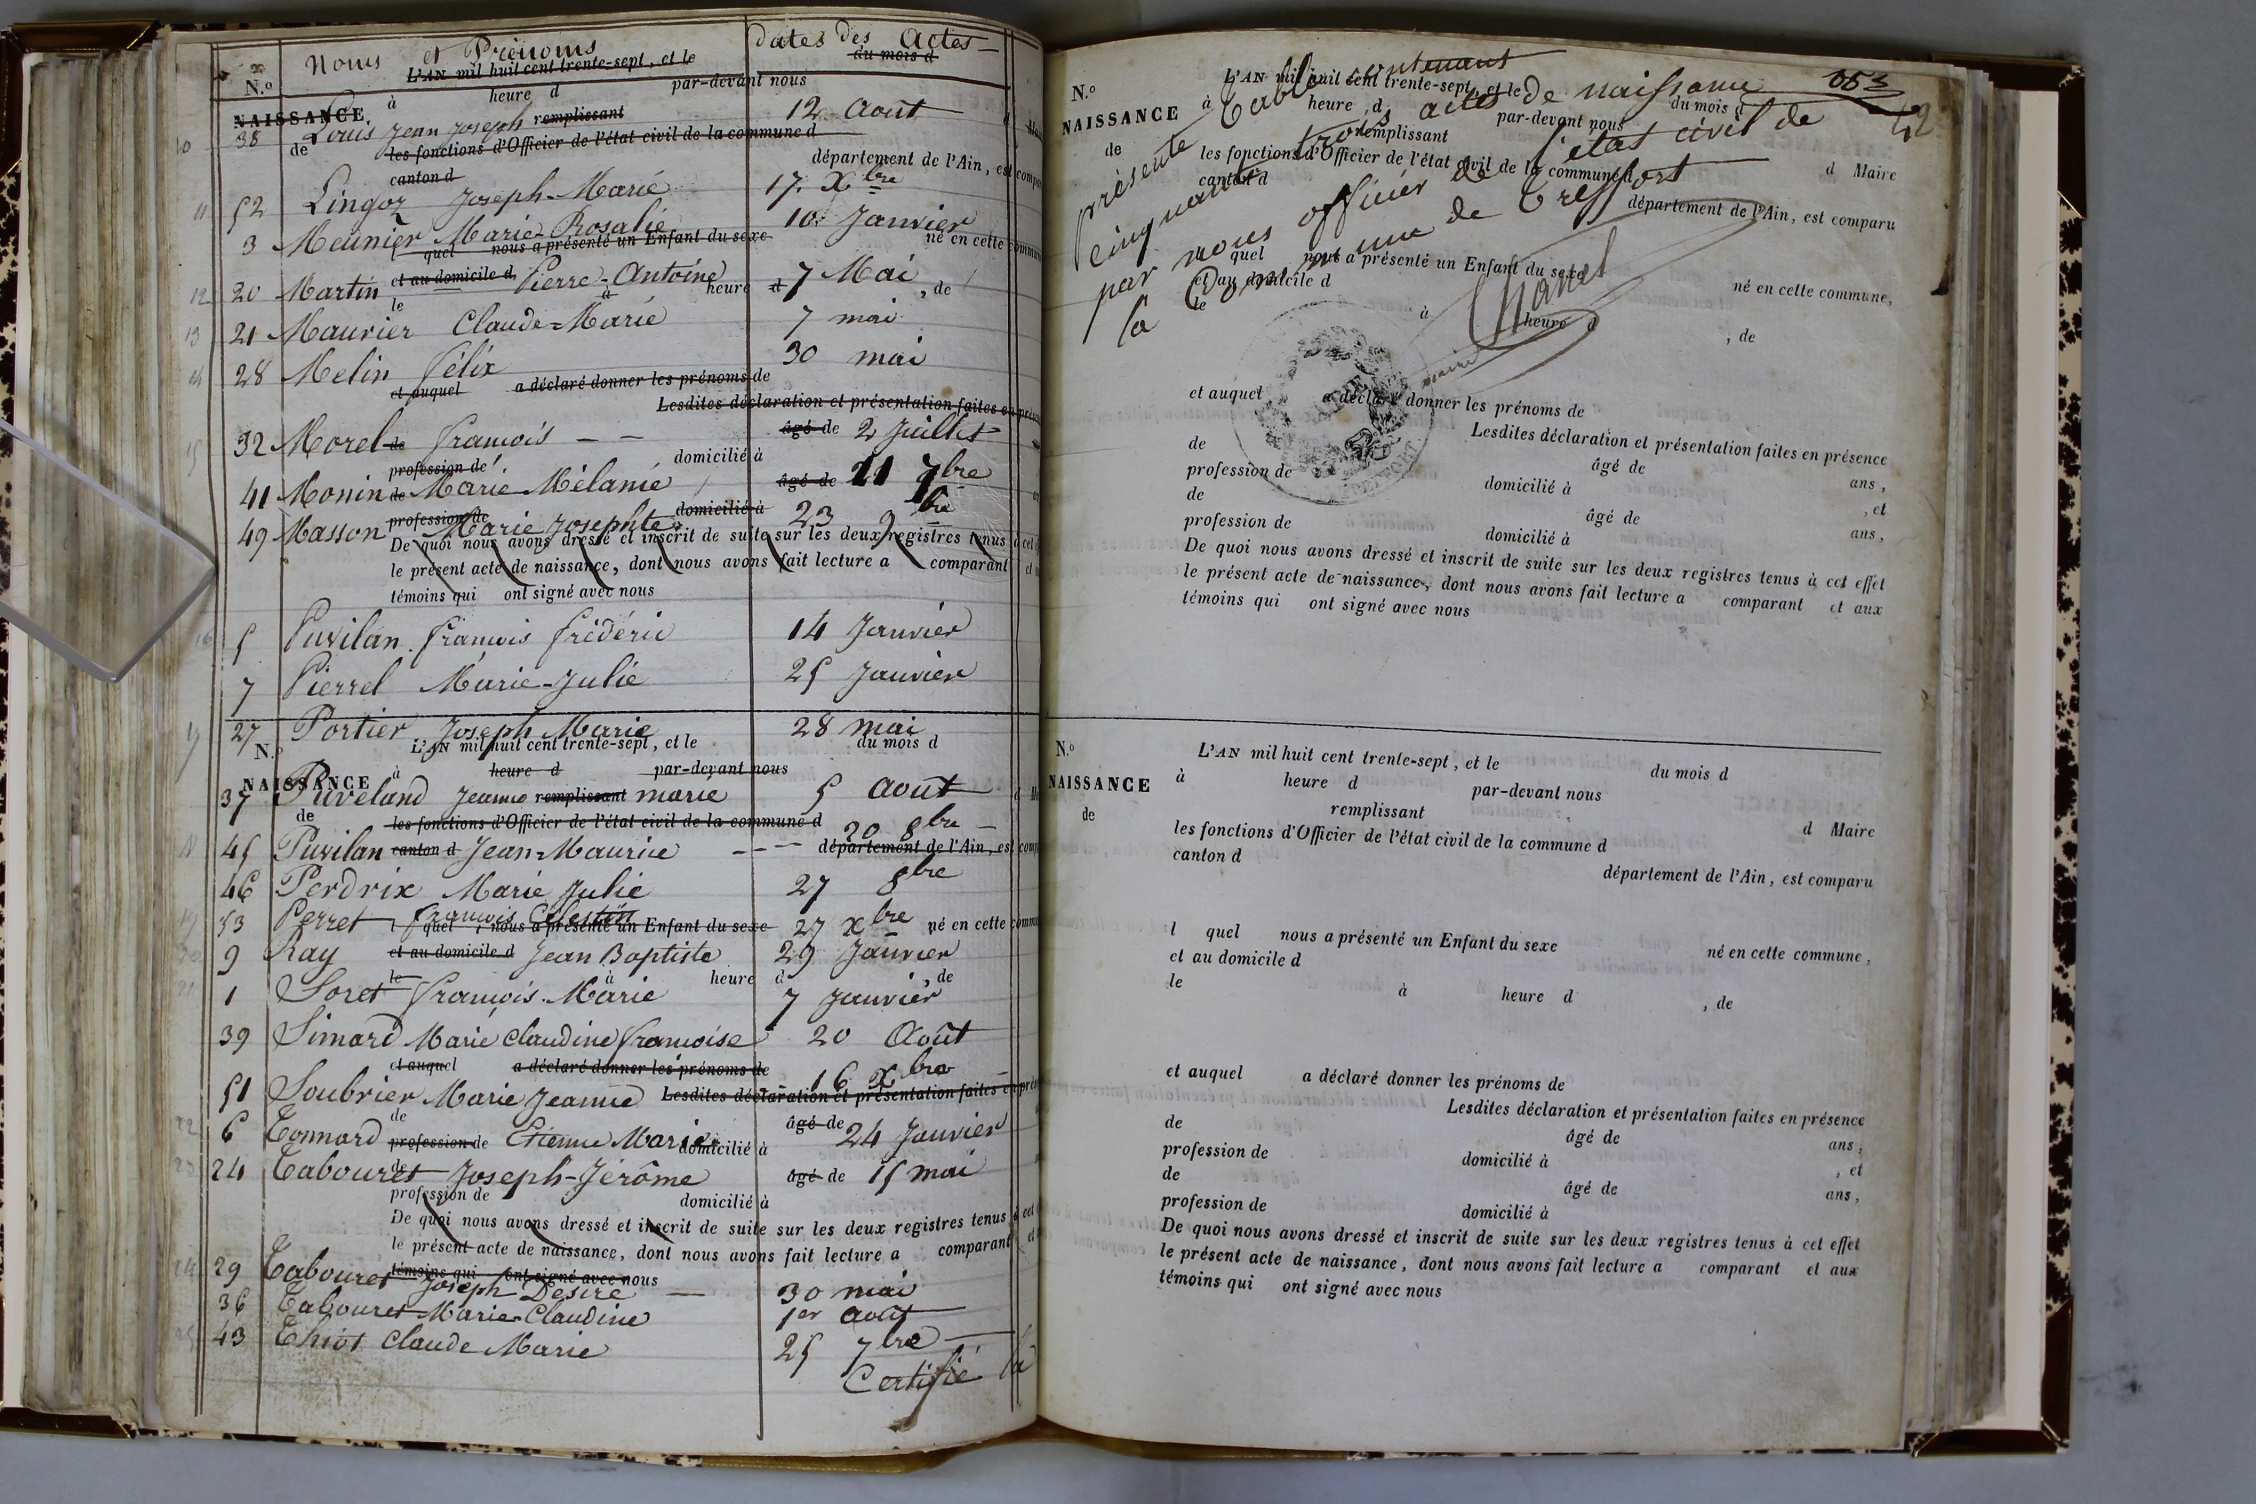 Noms et Prénoms dates des Actes
N.o L'AN mil huit cent trente-sept, et le du mois d
à heure d par-devant nous
NAISSANCE remplissant
38 Louis Jean Joseph 12 Août
de les fonctions d'Officier de l'état civil de la commune d
canton d département de l'Ain, est
52 Lingoz Joseph-Marie 17. Xbre
3 Meunier Marie-Rosalie 10. Janvier
l quel nous a présenté un Enfant du sexe né en cette
et au domicile d
20 Martin Pierre-Antoine 7 Mai
le à heure d , de
21 Maurier Claude-Marie 7 mai
28 Melin Félix 30 mai
et auquel a déclaré donner les prénoms de
Lesdites déclaration et présentation faites en
32 Morel de François - - âgé de 2 Juillet
profession de domicilié à
41 Monin de Marie Mélanie âgé de 21 7bre
profession de domicilié à
49 Masson Marie Josephte 23 9bre
De quoi nous avons dressé et inscrit de suite sur les deux registres tenus à cet
le présent acte de naissance, dont nous avons fait lecture a comparant
témoins qui ont signé avec nous
5 Puvilan François Frédéric 14 Janvier
7 Pierrel Marie-Julie 25 Janvier
27 Portier Joseph Marie 28 mai
N.o L'AN mil huit cent trente-sept, et le du mois d
à heure d par-devant nous
NAISSANCE remplissant
37 Puveland Jeanne marie 5 Août
de les fonctions d'Officier de l'état civil de la commune d
45 Puvilan canton d Jean-Maurice 20 8bre
département de l'Ain, est
46 Perdrix Marie Julie 27 8bre
53 Perret François Célestin 27 Xbre
l quel , nous a présenté un Enfant du sexe né en cette
9 Ray et au domicile d Jean Baptiste 29 Janvier
le à heure d , de
1 Soret François-Marie 7 Janvier
39 Simard Marie Claudine Françoise 20 Août
et auquel a déclaré donner les prénoms de
51 Soubrier Marie Jeanne 16 Xbre
Lesdites déclaration et présentation faites en
de
6 Tonnard profession de Etienne Marie âgé de 24 Janvier
domicilié à
de
24 Tabouret Joseph-Jérôme âgé de 15 mai
profession de domicilié à
De quoi nous avons dressé et inscrit de suite sur les deux registres tenus à cet
le présent acte de naissance, dont nous avons fait lecture a comparant
témoins qui ont signé avec nous
29 Tabouret Joseph Désiré 30 mai
36 Tabouret Marie Claudine 1er Août
43 Thiot Claude Marie 25 7bre
Certifié la
présente Table contenant
cinquante trois actes de naissance
par nous officier de l'état civil de
la Commune de Treffort
Chanel
maire
053
42
N.o L'AN mil huit cent trente-sept, et le du mois d
NAISSANCE à heure d par-devant nous
de remplissant
les fonctions d'Officier de l'état civil de la commune d d Maire
canton d département de l'Ain, est comparu
quel nous a présenté un Enfant du sexe né en cette commune,
et au domicile d
le à heure d , de
et auquel a déclaré donner les prénoms de
Lesdites déclaration et présentation faites en présence
de âgé de ans,
profession de domicilié à , et
de âgé de ans,
profession de domicilié à
De quoi nous avons dressé et inscrit de suite sur les deux registres tenus à cet effet
le présent acte de naissance, dont nous avons fait lecture a comparant et aux
témoins qui ont signé avec nous
N.o L'AN mil huit cent trente-sept, et le du mois d
NAISSANCE à heure d par-devant nous
de remplissant d Maire
les fonctions d'Officier de l'état civil de la commune d
canton d département de l'Ain, est comparu
l quel nous a présenté un Enfant du sexe né en cette commune,
et au domicile d
le à heure d , de
et auquel a déclaré donner les prénoms de
Lesdites déclaration et présentation faites en présence
de âgé de ans,
profession de domicilié à , et
de âgé de ans,
profession de domicilié à
De quoi nous avons dressé et inscrit de suite sur les deux registres tenus à cet effet
le présent acte de naissance, dont nous avons fait lecture a comparant et aux
témoins qui ont signé avec nous